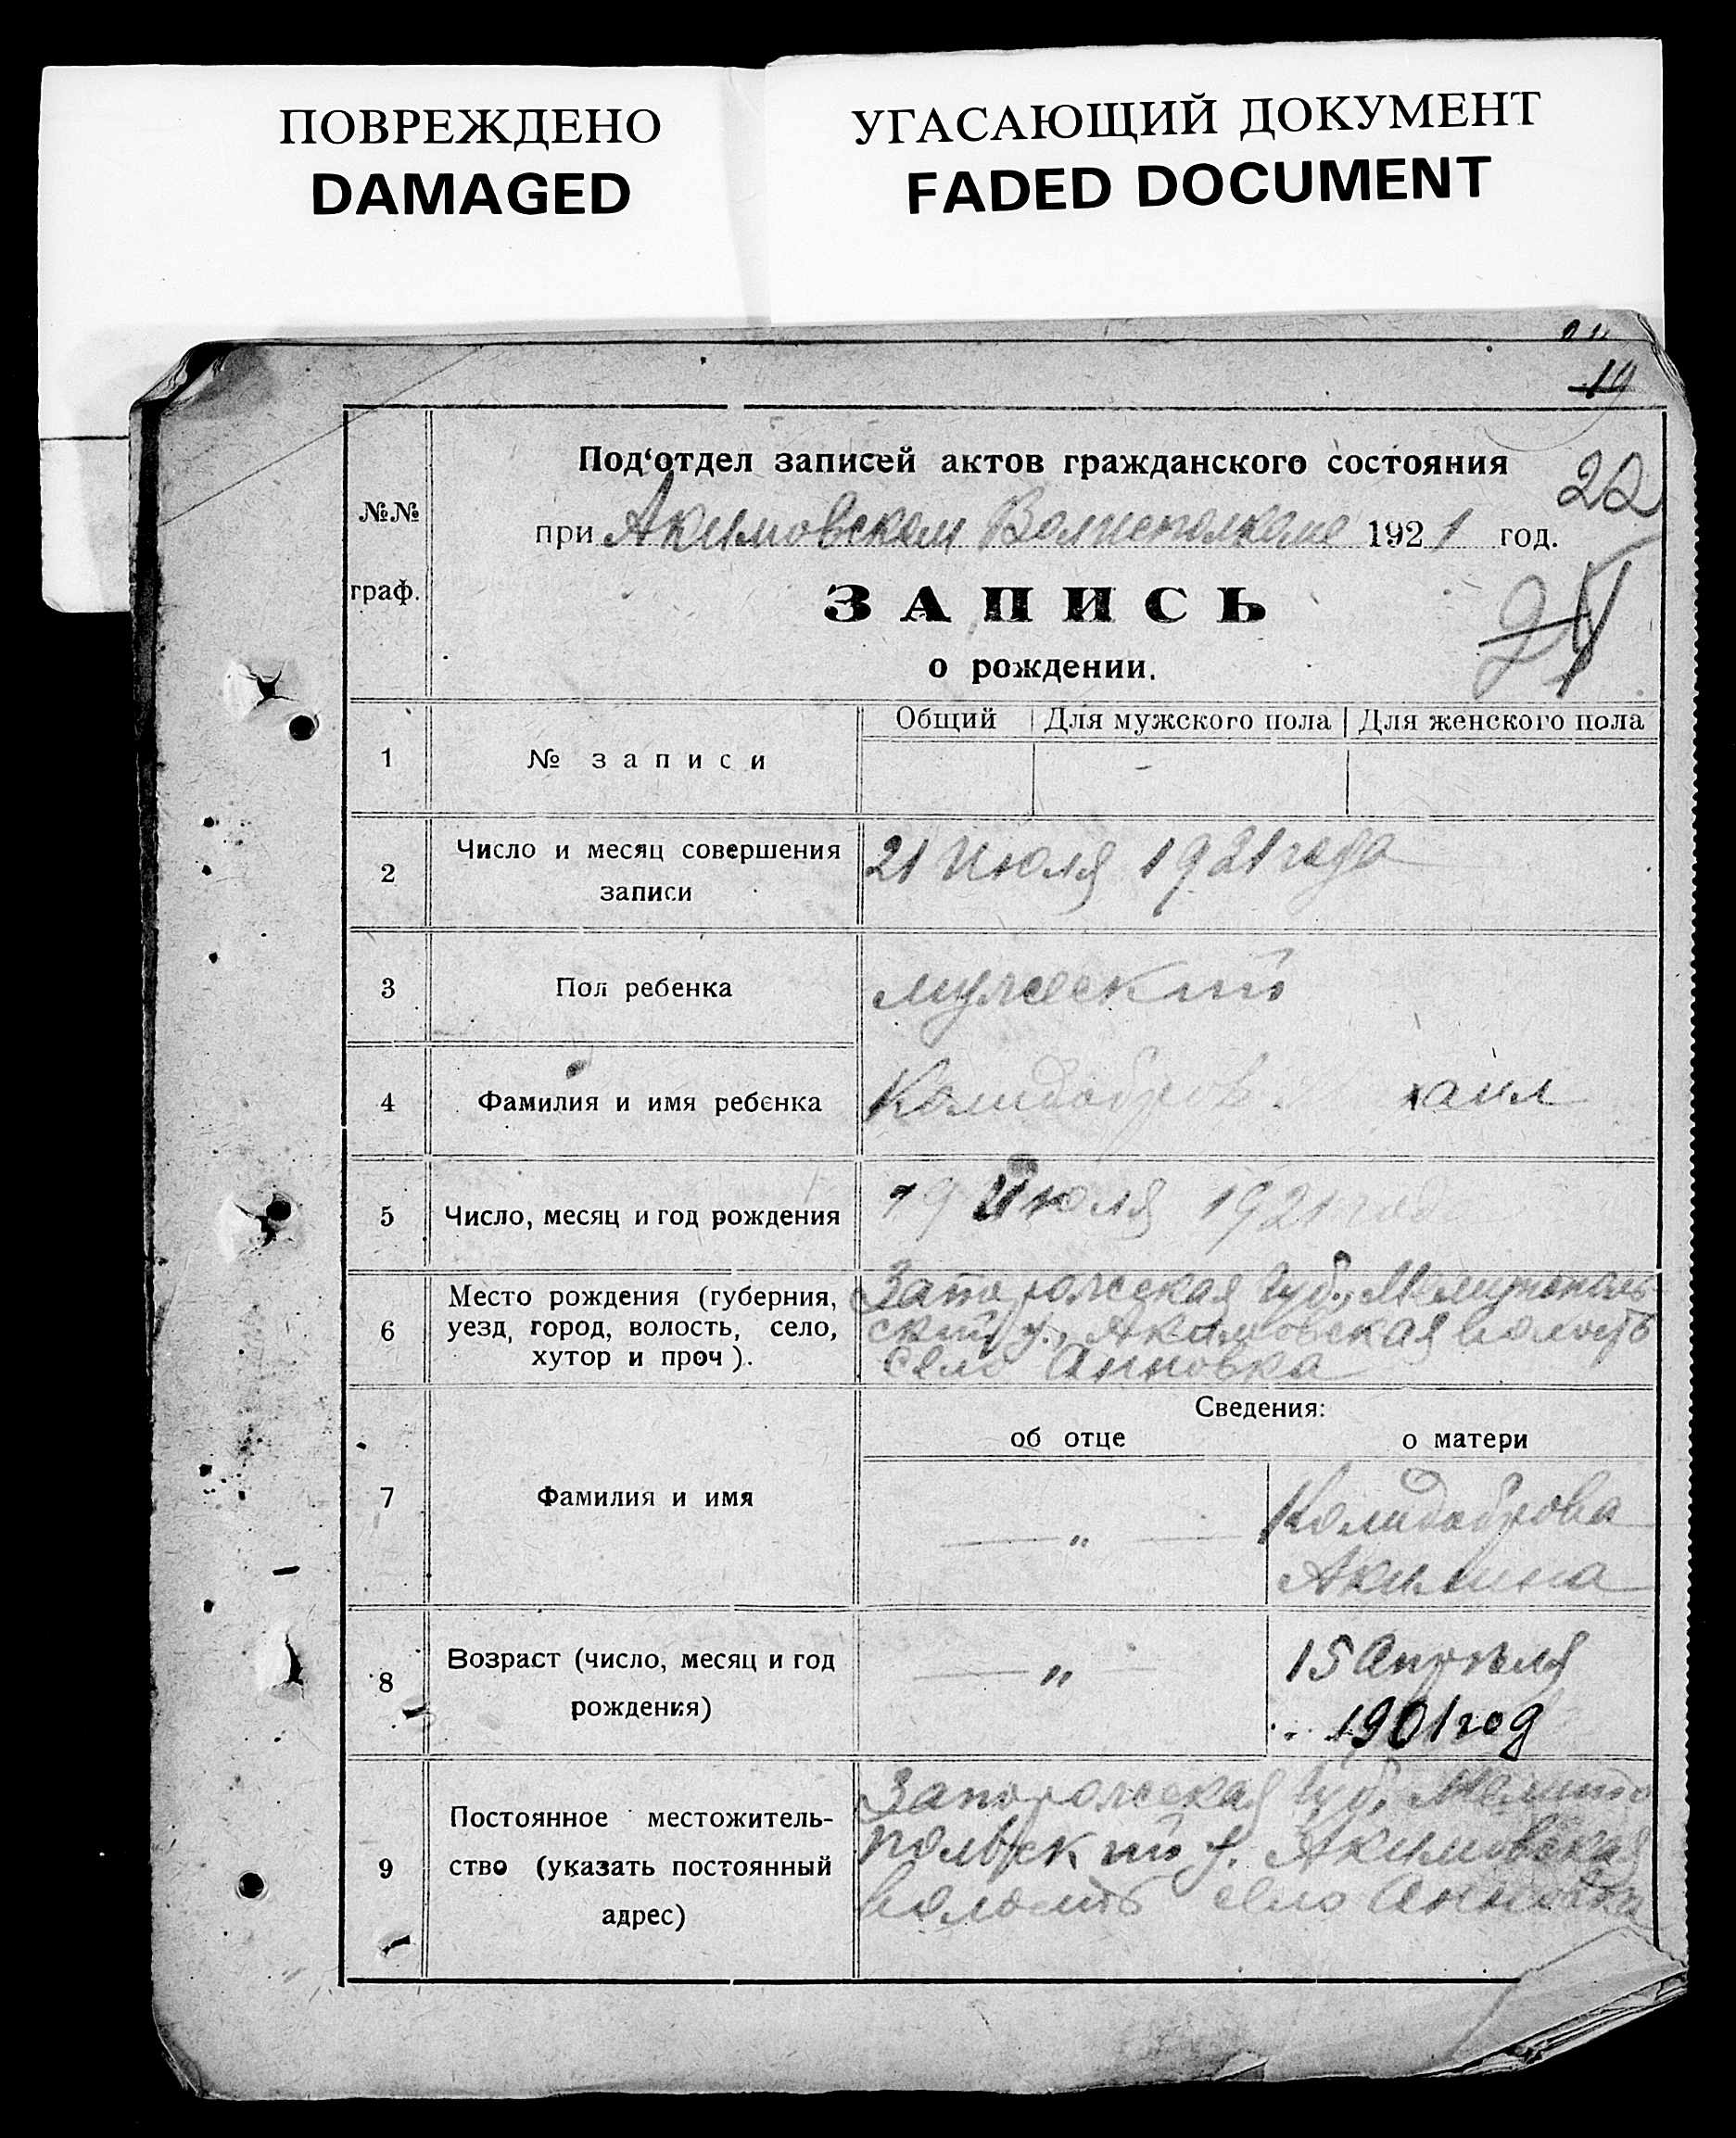 ПОВРЕЖДЕНО
DAMAGED
УГАСАЮЩИЙ ДОКУМЕНТ
FADED DOCUMENT
19
№№
граф.
Под‘отдел записей актов гражданского состояния
22
при Акимовском Волисполкоме 1921 год.
ЗАПИСЬ
о рождении.
Общий Для мужского пола Для женского пола
1 № записи
2 Число и месяц совершения
записи
21 Июля 1921 года
3 Пол ребенка мужеский
4 Фамилия и имя ребенка Колидобров хаил
5 Число, месяц и год рождения 19 Июля 1921 года
6 Место рождения (губерния,
уезд, город, волость, село,
хутор и проч).
Запорожская губ., Мелитополь-
ский у., Акимовская волость
село Анновка
Сведения:
об отце о матери
7 Фамилия и имя
— „ —
Колидоброва
Акилина
8 Возраст (число, месяц и год
рождения)
— „ —
15 Апреля
1901 год
9 Постоянное местожитель-
ство (указать постоянный
адрес)
Запорожская губ. Мелито
польский у. Акимовская
волость село Анновка